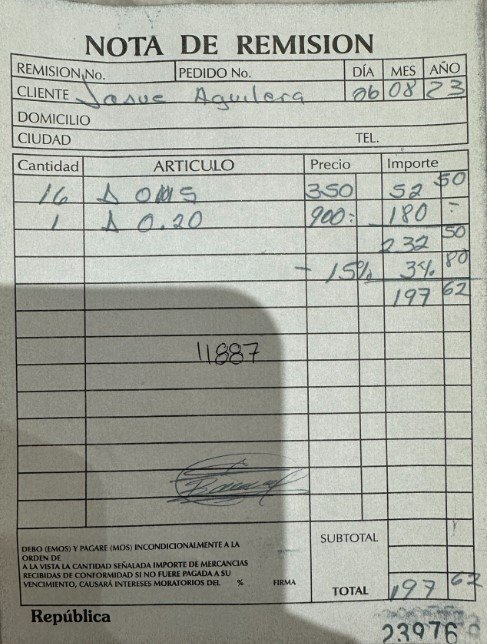 NOTA DE REMISION
REMISION No. PEDIDO No. DÍA MES AÑO
CLIENTE Josue Aguilera 06 08 23
DOMICILIO
CIUDAD TEL.
Cantidad ARTICULO Precio Importe
16 350 52 50
1 0.20 900 180 -
232 50
- 15% 34 80
197 62
11887
DEBO (EMOS) Y PAGARE (MOS) INCONDICIONALMENTE A LA
ORDEN DE
A LA VISTA LA CANTIDAD SEÑALADA IMPORTE DE MERCANCIAS
RECIBIDAS DE CONFORMIDAD SI NO FUERE PAGADA A SU
VENCIMIENTO, CAUSARÁ INTERESES MORATORIOS DEL % FIRMA
SUBTOTAL
TOTAL 197 62
República
23976